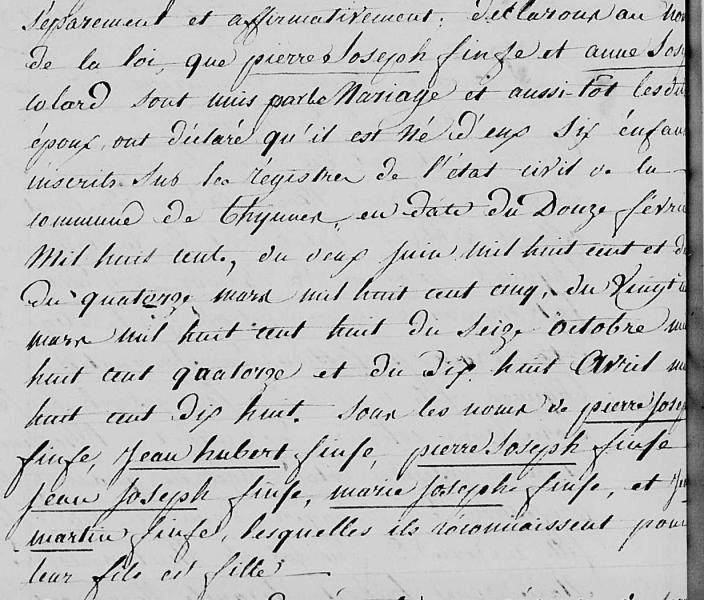 séparement et affirmativement, déclarons au nom
de la loi, que pierre Joseph finfe et anne Jose
Colard sont unis par le Mariage et aussi-tôt lesdits
époux, ont déclaré qu'il est Né d'eux Six énfans
inscrits Sur les régistres de l'état civil de la
commune de thynnes, en date du Douze févri
Mil huit cent, du deux juin mil huit cent et d
du quatorze mars mil huit cent cinq, du Vingt
mars mil huit cent huit du Seize octobre mil
huit cent quatorze et du dix huit Avril mil
huit cent dix huit. Sous les noms de pierre Josep
finfe, Jean hubert finfe, pierre Joseph finfe
Jean Joseph finfe, marie Joseph finfe, et Jea
martin finfe, lesquelles ils réconnaissent pour
leur fils et fille